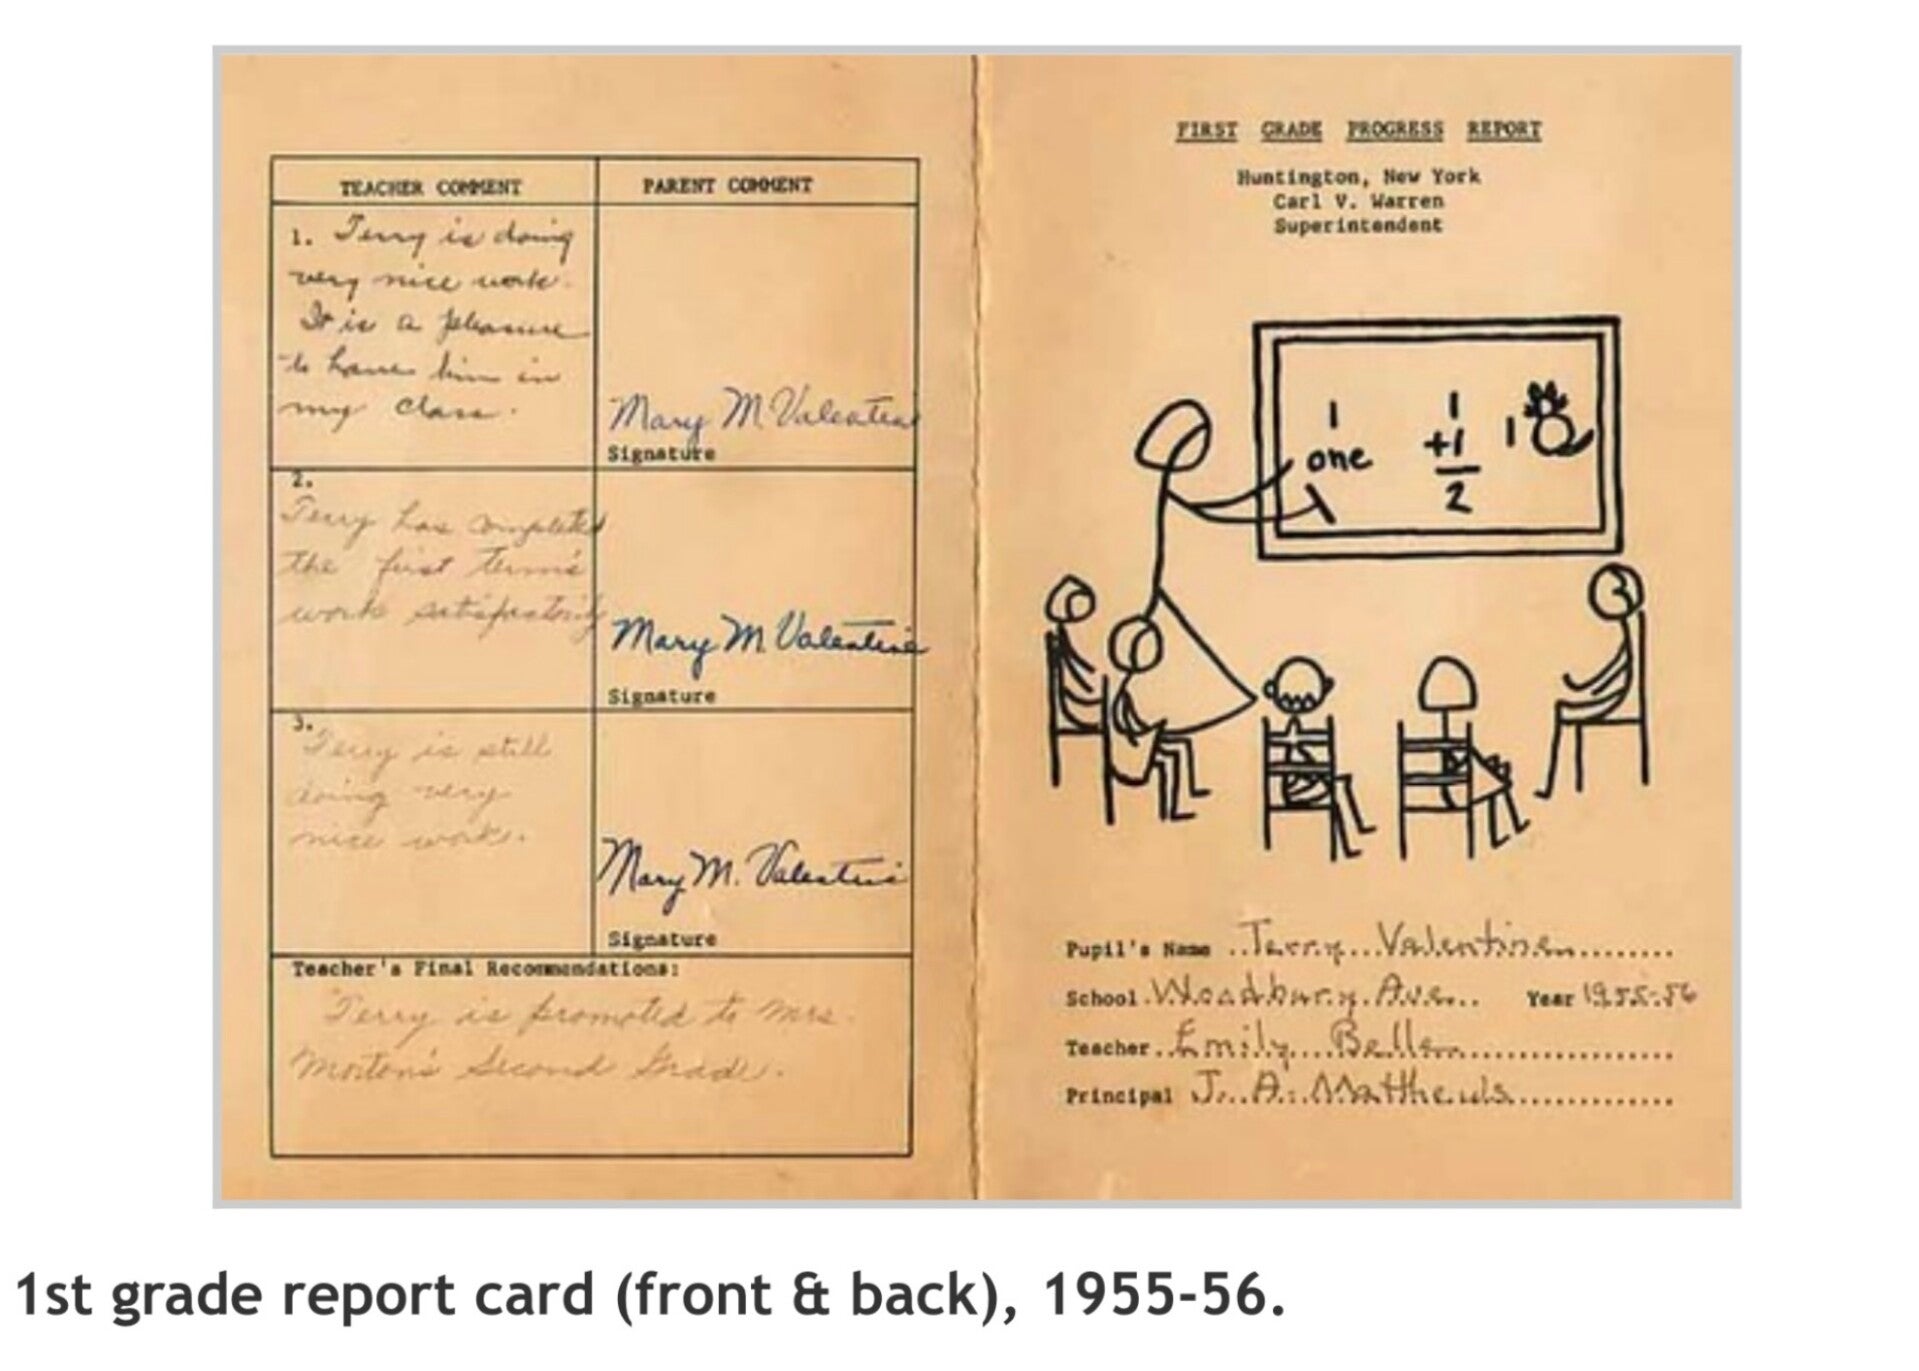 TEACHER COMMENT
PARENT COMMENT
1. Terry is doing
very nice work.
It is a pleasure
to have him in
my class.
Mary M Valentine
Signature
2.
Terry has completed
the first term's
work satisfactorily
Mary M Valentine
Signature
3.
Terry is still
doing very
nice work.
Mary M. Valentine
Signature
Teacher's Final Recommendations:
Terry is promoted to Mrs.
Morton's Second Grade.
FIRST GRADE PROGRESS REPORT
Huntington, New York
Carl V. Warren
Superintendent
1
one
1
+1
2
1
Pupil's Name ..Terry...Valentine.........
School.Woodbury.Ave... Year 1955-56
Teacher..Emily....Beller..................
Principal J...A..Matthews..............
1st grade report card (front & back), 1955-56.